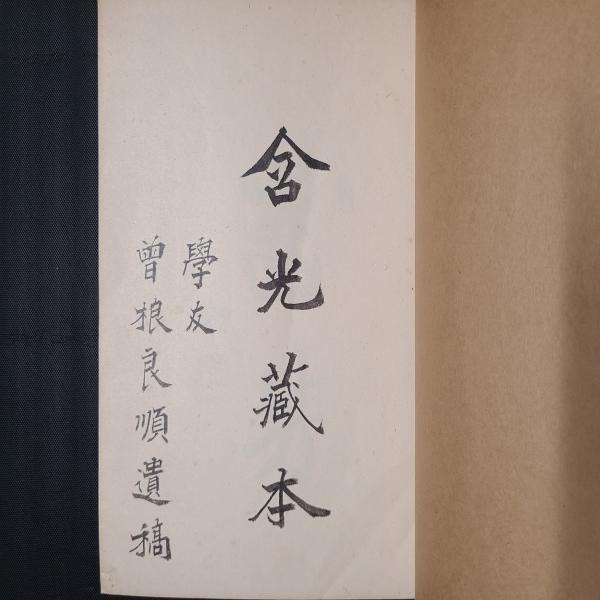 含光藏本
學友
曾根良順遺稿